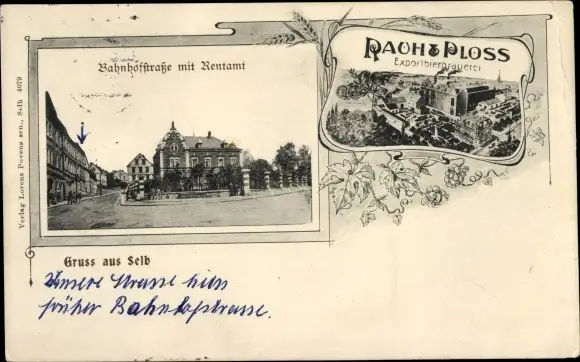 Bahnhofstraße mit Rentamt
RAUH & PLOSS
Exportbierbrauerei
Verlag Lorenz Povenz sen., Selb 4079
Gruss aus Selb
Unsere Strasse hies
früher Bahnhofstrasse.